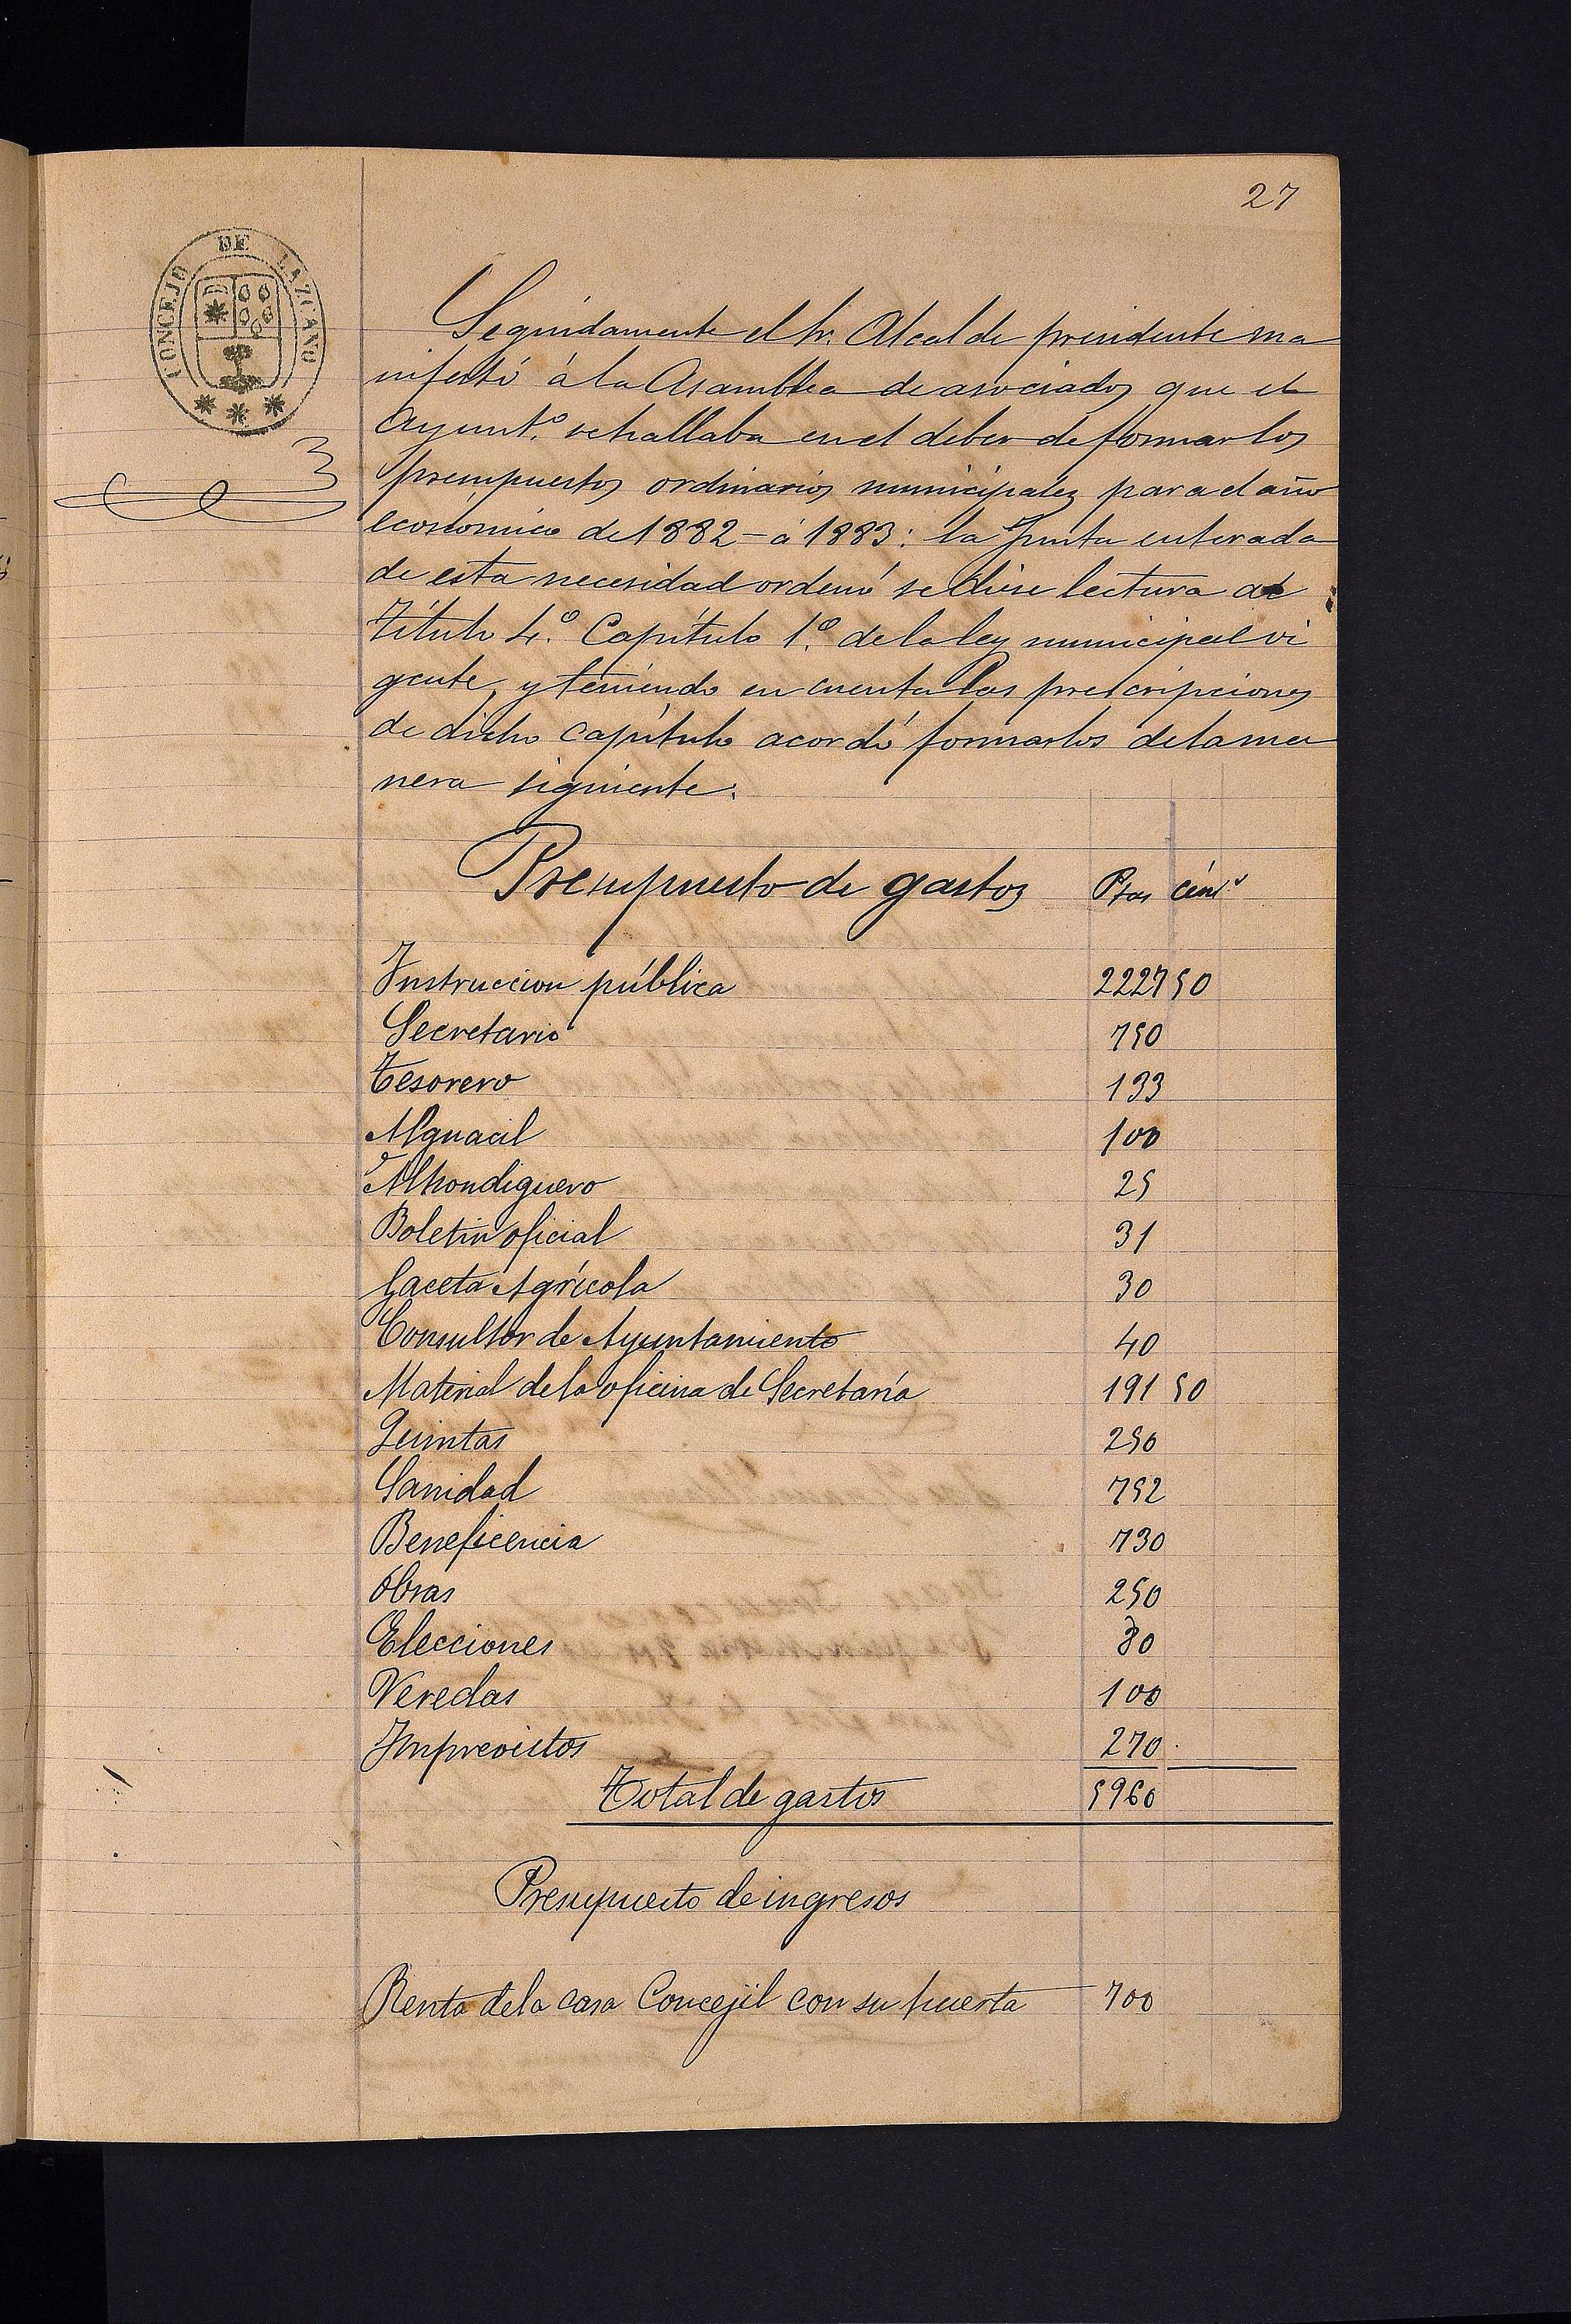 27
CONCEJO DE LAZCANO
Seguidamente el Sr. Alcalde presidente ma
nifestó á la Asamblea de asociados que el
Ayunt.º se hallaba en el deber de formar los
presupuestos ordinarios municipales para el año
económico de 1882 - á 1883: la Junta enterada
de esta necesidad ordenó se diese lectura al
Título 4.º Capítulo 1.º de la ley municipal vi
gente, y teniendo en cuenta las prescripciones
de dicho capítulo acordó formarlos de la ma
nera siguiente:
Presupuesto de gastos Ptas cént.s
Instruccion pública 2227 50
Secretario 750
Tesorero 133
Alguacil 100
Alhondiguero 25
Boletin oficial 31
Gaceta Agrícola 30
Consultor de Ayuntamiento 40
Material de la oficina de Secretaría 191 50
Quintas 250
Sanidad 752
Beneficencia 730
Obras 250
Elecciones 80
Veredas 100
Imprevistos 270
Total de gastos 5960
Presupuesto de ingresos
Renta de la casa Concejil con su huerta 700